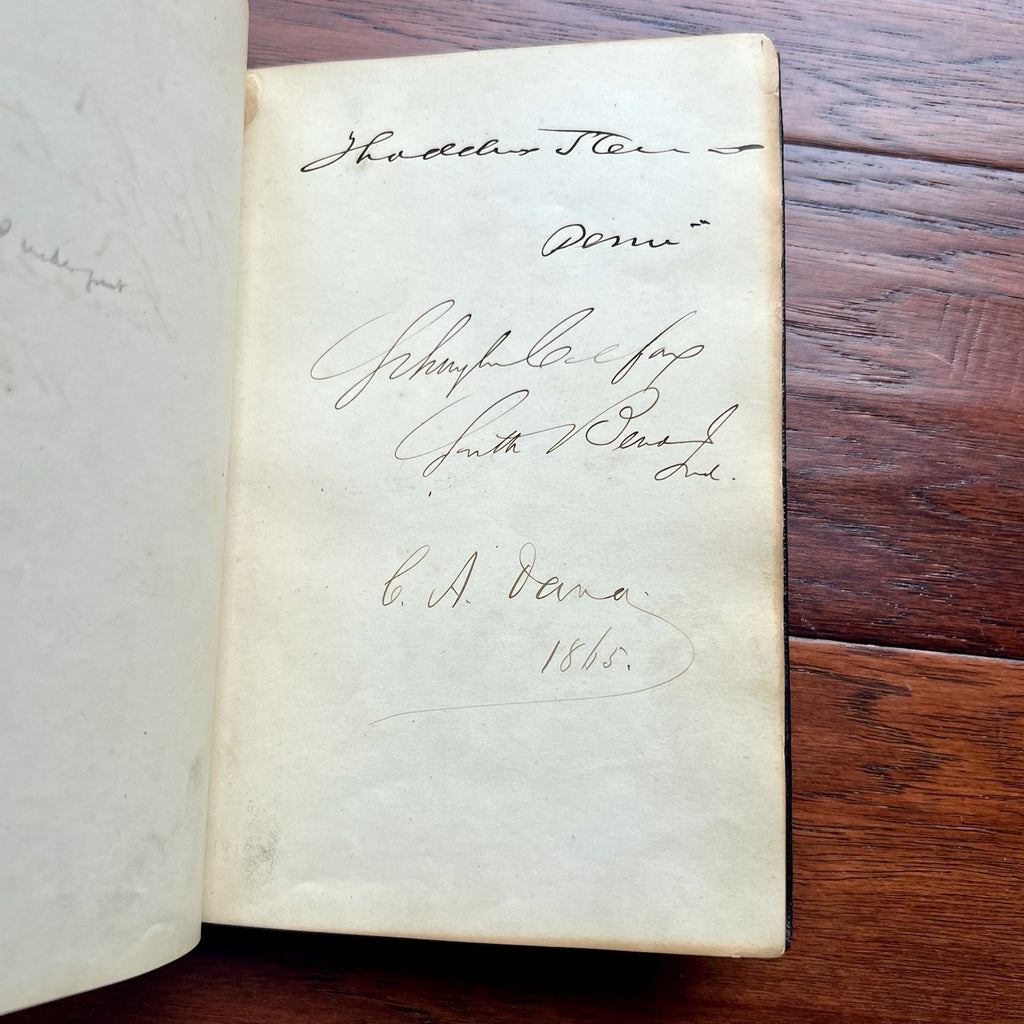 Thaddeus Stevens
Penn"
Schuyler Colfax
South Bend
Ind.
C. A. Dana.
1865.